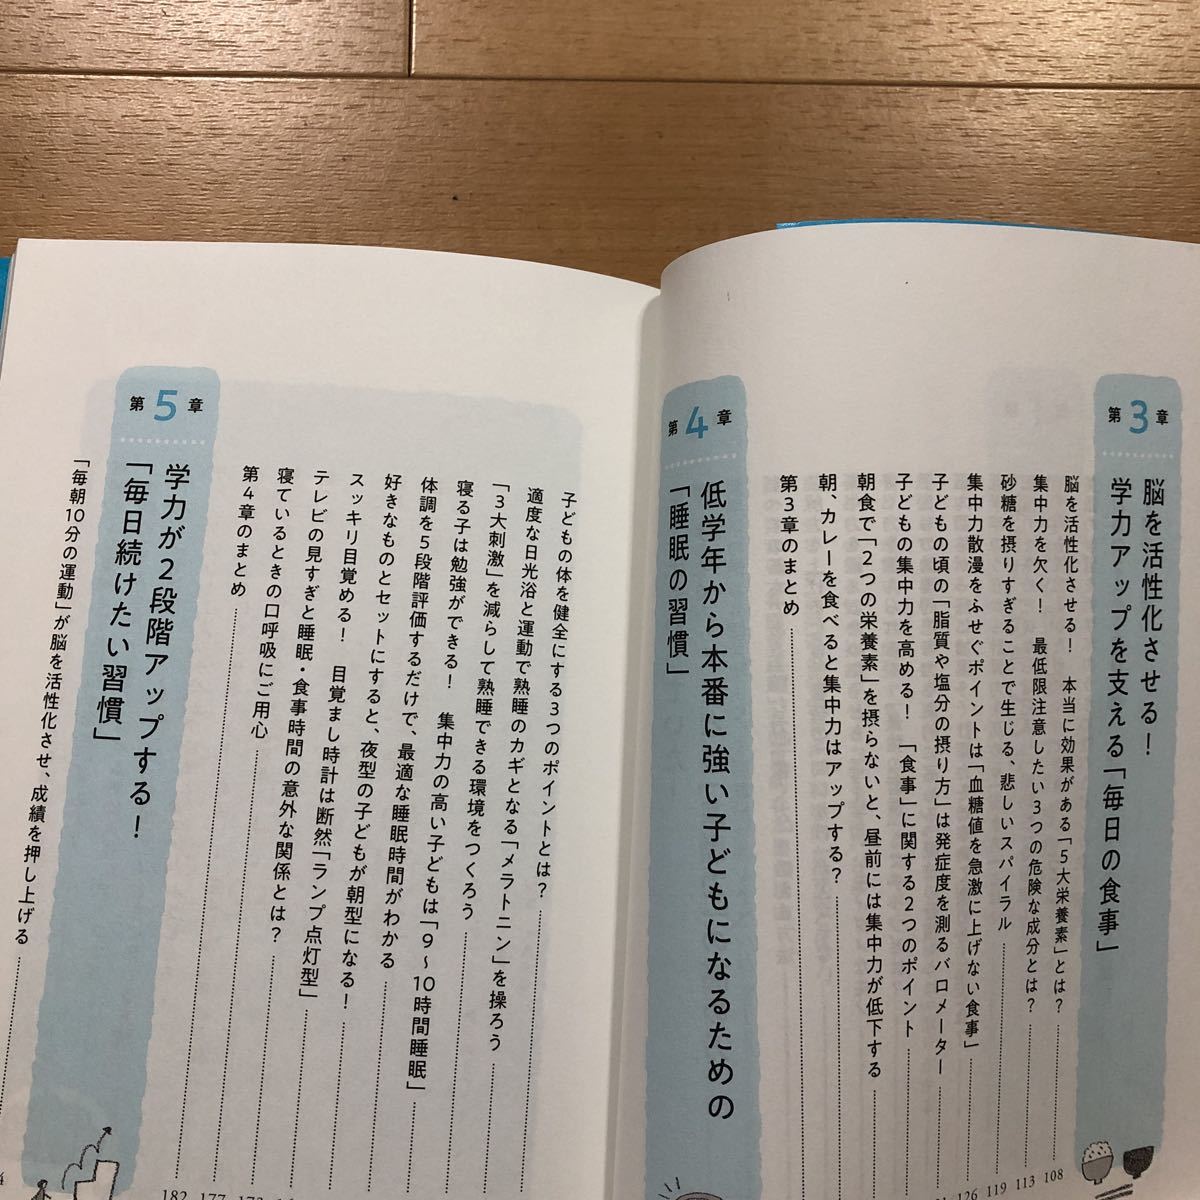 第3章
脳を活性化させる！
学力アップを支える「毎日の食事」
脳を活性化させる！　本当に効果がある「5大栄養素」とは？ 108
集中力を欠く！　最低限注意したい3つの危険な成分とは？ 113
砂糖を摂りすぎることで生じる、悲しいスパイラル 119
集中力散漫をふせぐポイントは「血糖値を急激に上げない食事」 126
子どもの頃の「脂質や塩分の摂り方」は発症度を測るバロメーター
子どもの集中力を高める！　「食事」に関する2つのポイント
朝食で「2つの栄養素」を摂らないと、昼前には集中力が低下する
朝、カレーを食べると集中力はアップする？
第3章のまとめ
第4章
低学年から本番に強い子どもになるための
「睡眠の習慣」
子どもの体を健全にする3つのポイントとは？
適度な日光浴と運動で熟睡のカギとなる「メラトニン」を操ろう
「3大刺激」を減らして熟睡できる環境をつくろう
寝る子は勉強ができる！　集中力の高い子どもは「9〜10時間睡眠」
体調を5段階評価するだけで、最適な睡眠時間がわかる
好きなものとセットにすると、夜型の子どもが朝型になる！
スッキリ目覚める！　目覚まし時計は断然「ランプ点灯型」
テレビの見すぎと睡眠・食事時間の意外な関係とは？
寝ているときの口呼吸にご用心 177
第4章のまとめ 182
第5章
学力が2段階アップする！
「毎日続けたい習慣」
「毎朝10分の運動」が脳を活性化させ、成績を押し上げる